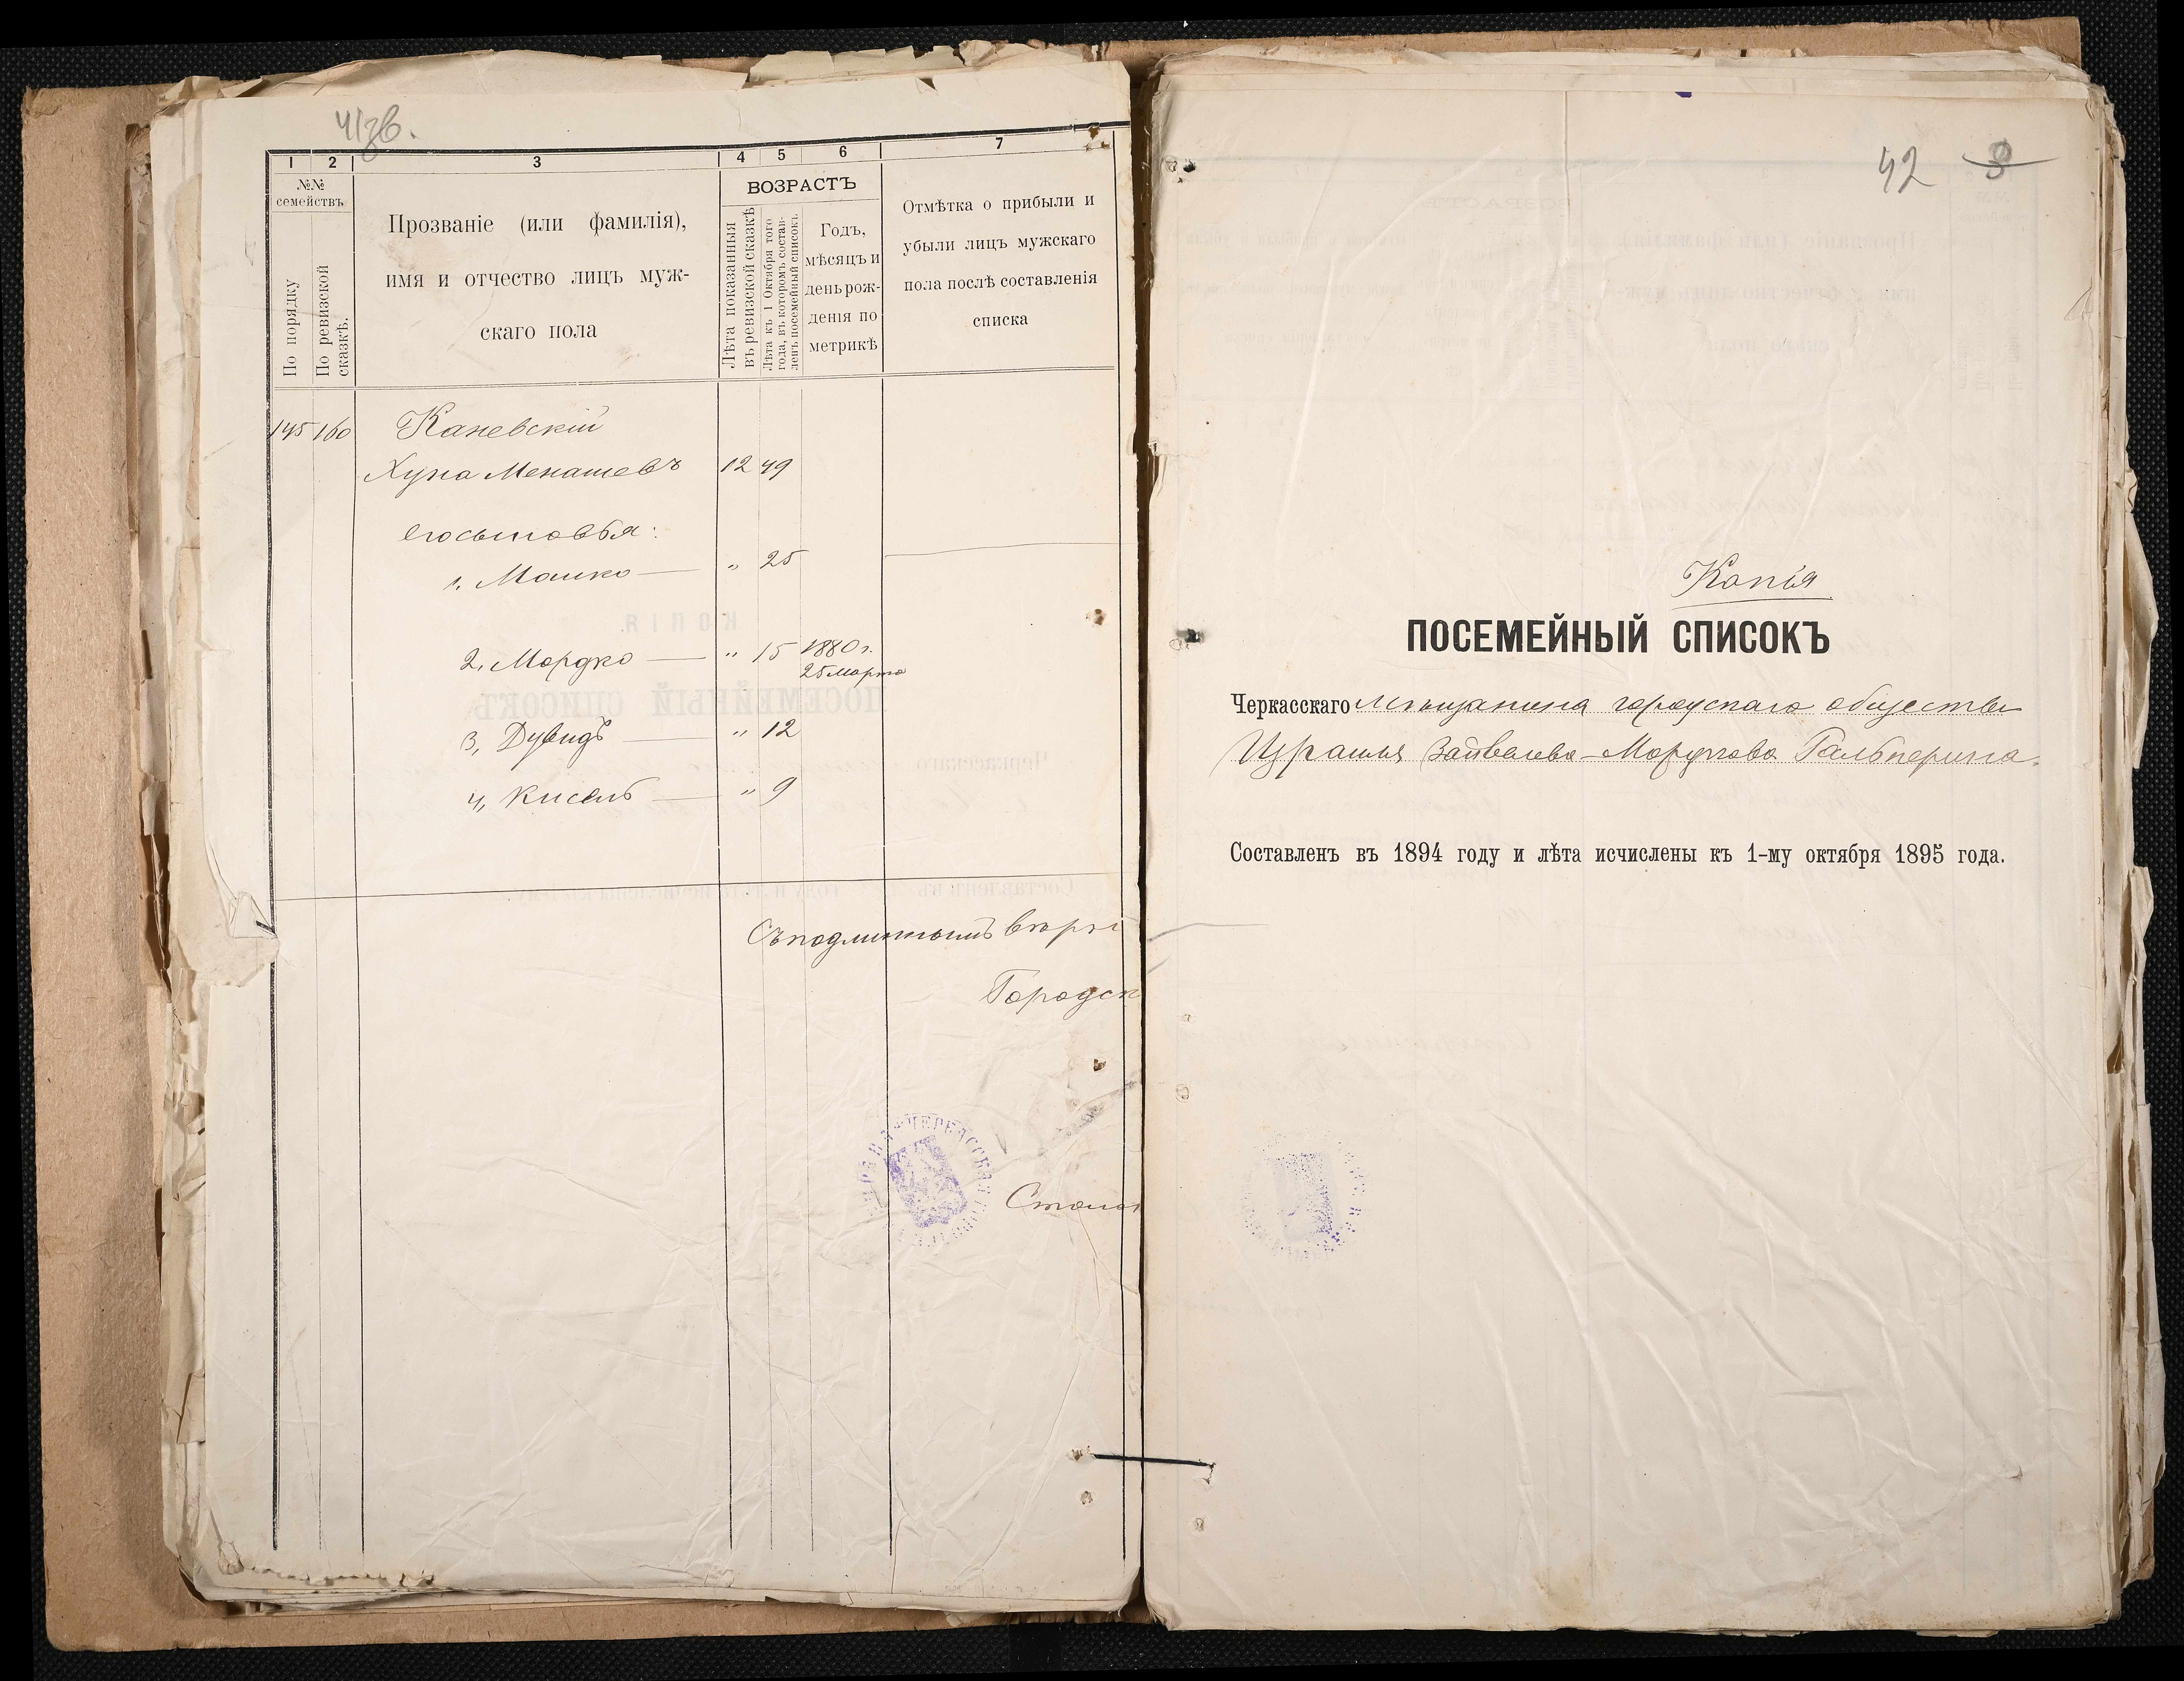 41зв.
1 2 3 4 5 6 7
№№ семействъ
По порядку
По ревизской сказкѣ.
Прозваніе (или фамилія),
имя и отчество лицъ муж-
скаго пола
ВОЗРАСТЪ
Лѣта показанныя
въ ревизской сказкѣ
Лѣта къ 1 Октября того
года, въ которомъ состав-
ленъ посемейный списокъ.
Годъ,
мѣсяцъ и
день рож-
денія по
метрикѣ
Отмѣтка о прибыли и
убыли лицъ мужскаго
пола послѣ составленія
списка
145 160 Каневскій
Хуна Менашевъ 12 49
его сыновья:
1, Мошко — „ 25
2, Мордко — „ 15 1880 г.
25 марта
3, Дувидъ — „ 12
4, Кисель — „ 9
Съ подлиннымъ вѣрн
Городск
Столон
42 3
Копія
ПОСЕМЕЙНЫЙ СПИСОКЪ
Черкасскаго мѣщанина городскаго общества
Израиля Зайвелева-Мордкова Гальперина.
Составленъ въ 1894 году и лѣта исчислены къ 1-му октября 1895 года.